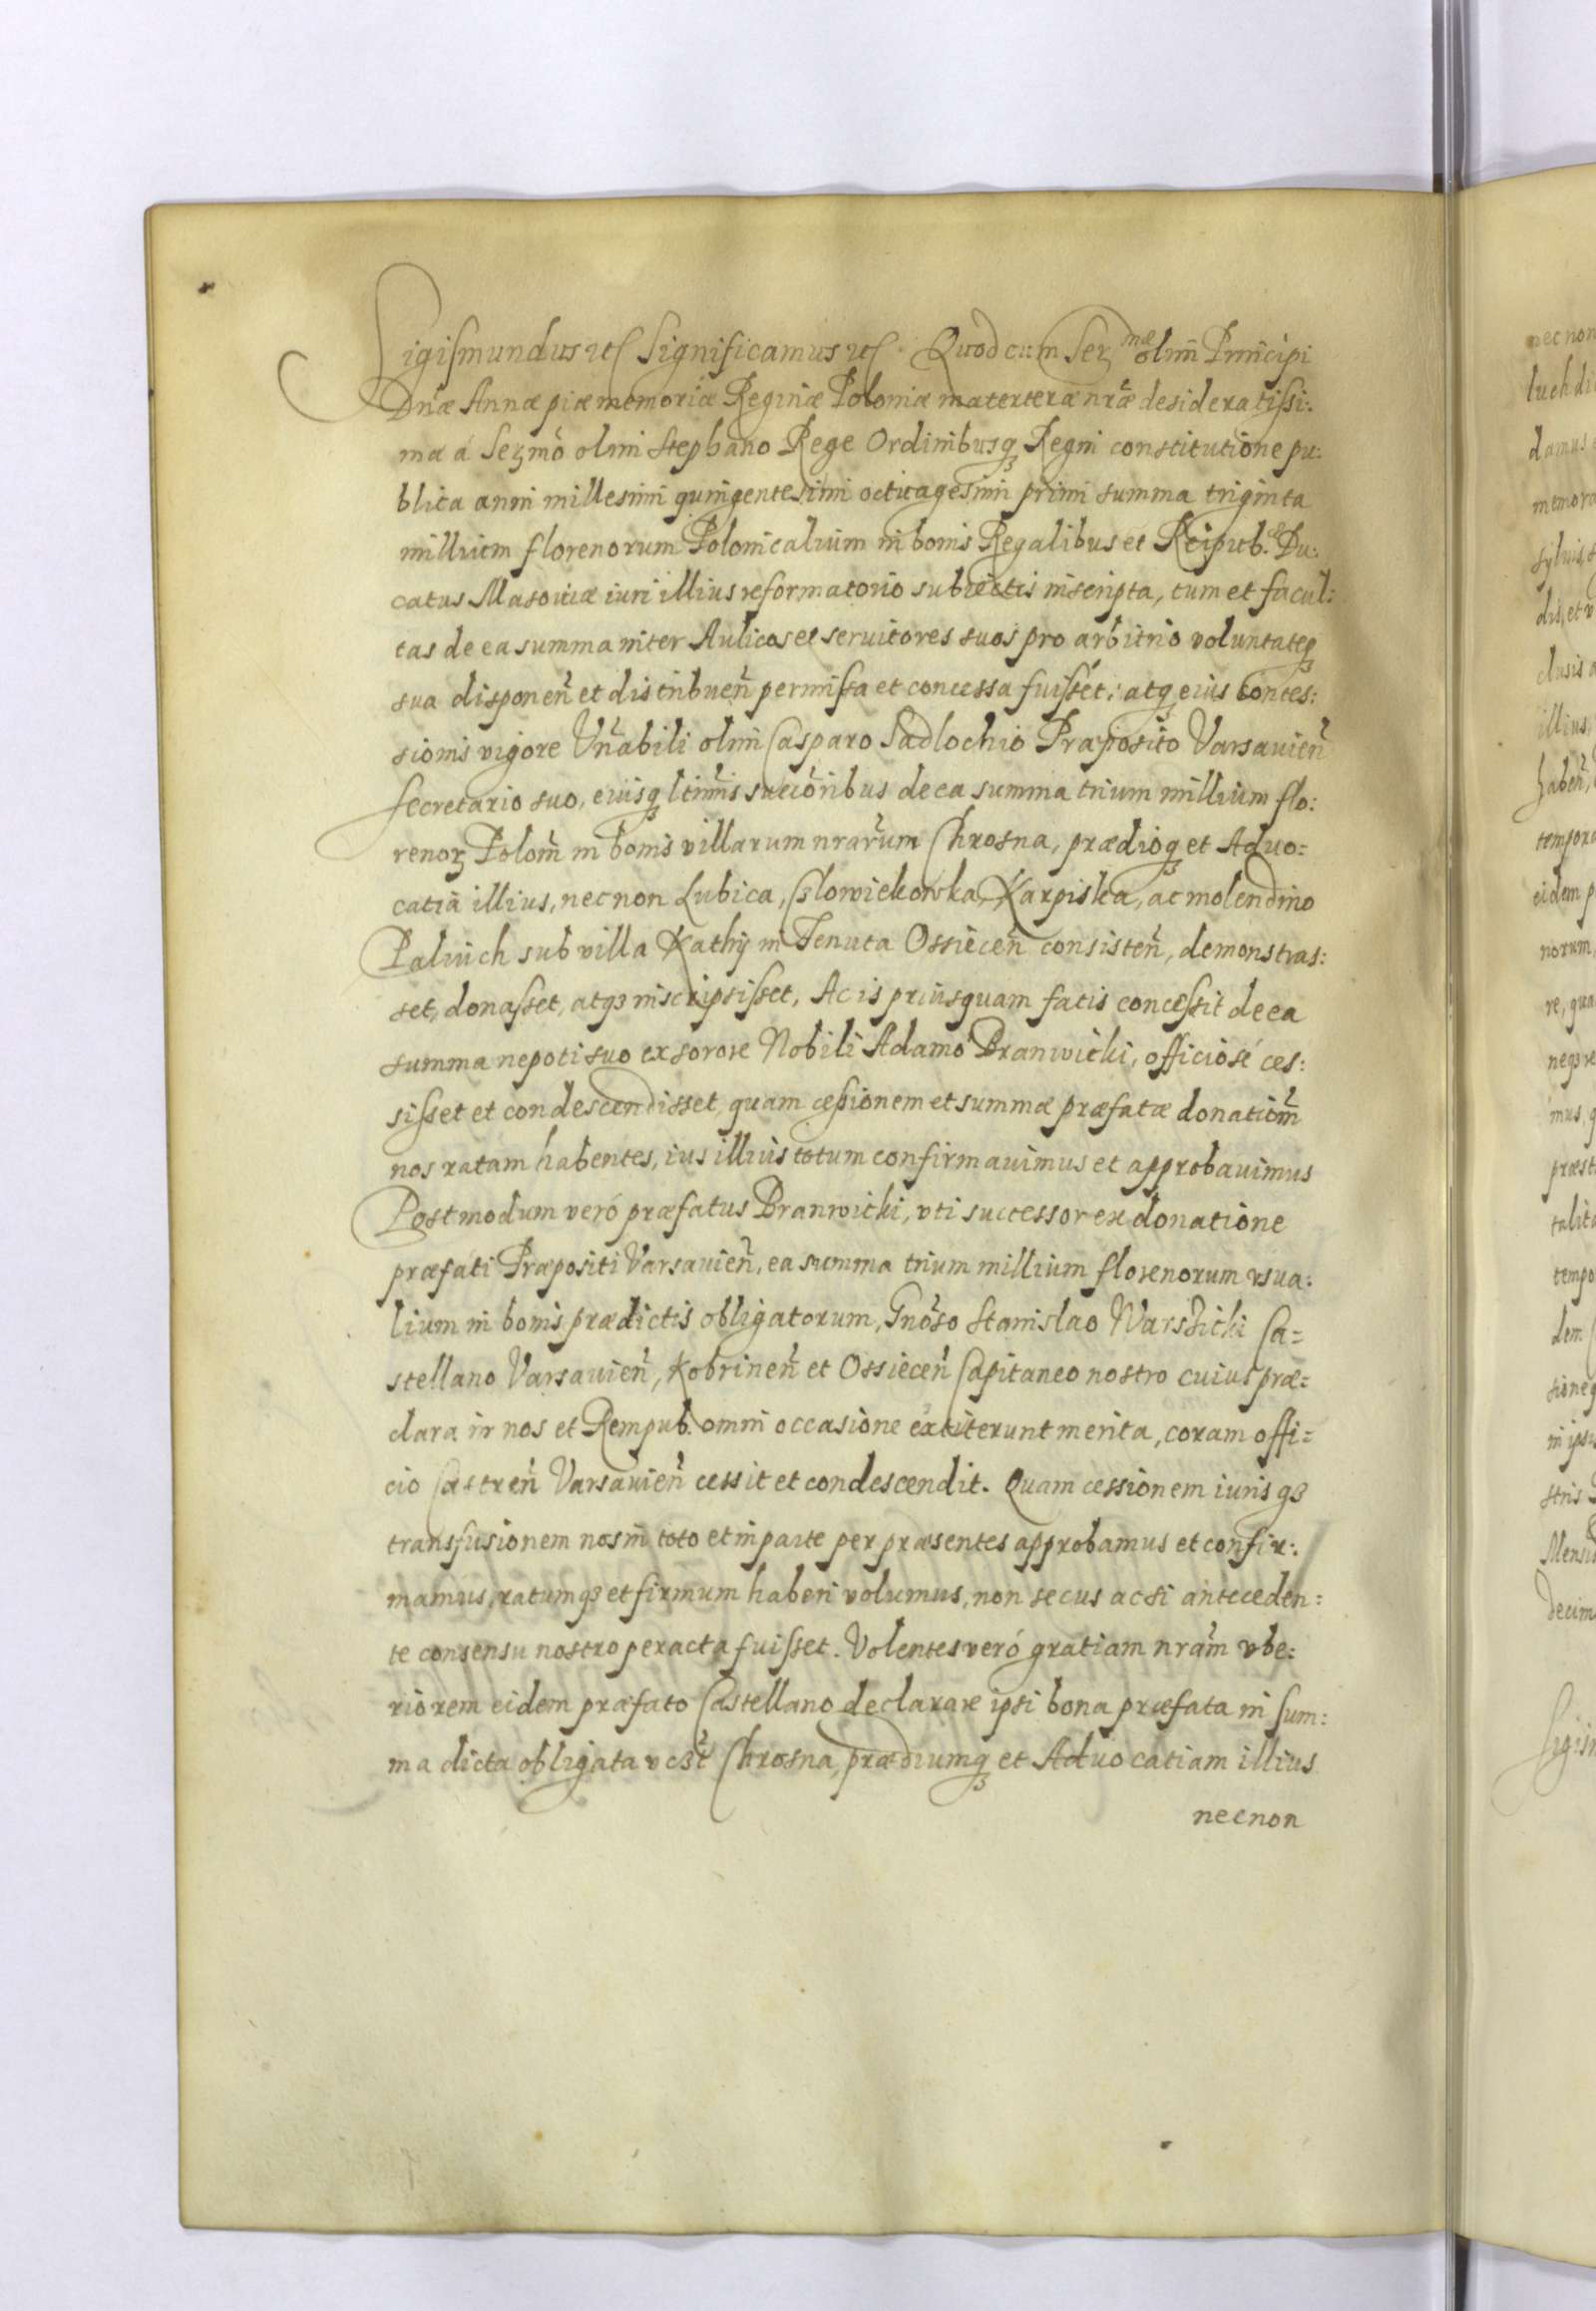 Sigismundus etc Significamus etc. Quod cum Serᵐᵃᵉ olim Principi
Dn̄æ Annæ piæ memoriæ Reginæ Poloniæ materteræ nr̄æ desideratissi:
mæ á Serᵐō olim Stephano Rege Ordinibusq̨ Regni constitutione pu:
blica anni millesimi quingentesimi octuagesimi primi summa triginta
millium florenorum Polonicalium in bonis Regalibus et Reipub. Du:
catus Masoviæ iuri illius reformatorio subiectis inscripta, tum et facul:
tas de ea summa inter Aulicos et servitores suos pro arbitrio voluntateq̨
sua disponen̄ et distribuen̄ permissa et concessa fuisset: atq̨ eius Contes:
sionis vigore Vn̄abili olim Casparo Sadlochio Præposito Varsavien̄
secretario suo, eiusq̨ ltimīs succōribus de ea summa trium millium flo:
renoꝝ Polon̄ in bonis villarum nrārum Chrosna, prædioq̨ et Aduo=
catiā illius, necnon Lubica, Czlowiekowka, Karpiska, ac molendino
Paluch sub villa Kathy in Tenuta Ossiecen̄ consisten̄, demonstras:
set, donasset, atqȝ inscripsisset, Ac is priusquam fatis concessit de ea
summa nepoti suo ex sorore Nobili Adamo Branwicki, officiosé ces:
sisset et condescendisset, quam cessionem et summæ præfatæ donatiōm
nos ratam habentes, ius illius totum confirmavimus et approbavimus
Postmodum veró præfatus Branwicki, vti successor ex donatione
præfati Præpositi Varsavien̄, ea summa trium millium florenorum vsua:
lium in bonis prædictis obligatorum, Gnōso Stanislao Warszicki Ca=
stellano Varsavien̄, Kobrinen̄ et Ossiecen̄ Capitaneo nostro cuius præ=
clara in nos et Rempub. omni occasione extiterunt merita, coram offi=
cio Castren̄ Varsavien̄ cessit et condescendit. Quam cessionem iuris qȝ
transfusionem nos in toto et in parte per præsentes approbamus et confir:
mamus, ratumqȝ et firmum haberi volumus, non secus ac si anteceden:
te consensu nostro peracta fuisset. Volentes veró gratiam nrām vbe:
riorem eidem præfato Castellano declarare ipsi bona præfata in sum:
ma dicta obligata vczt̄ Chrosna, prædiumq̨ et Aduocatiam illius
necnon